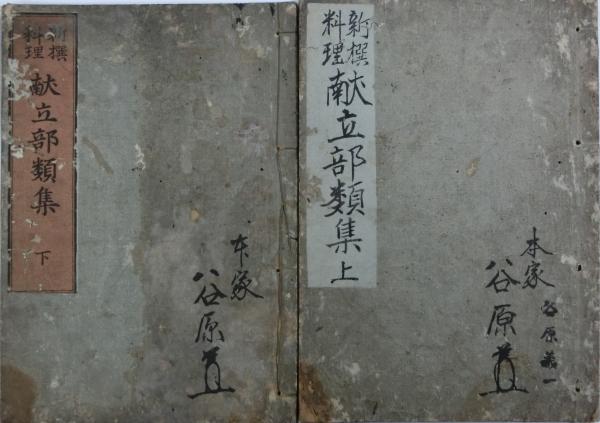 新撰
料理
献立部類集
上
本家
谷原
谷原義一
新撰
料理
献立部類集
下
本家
谷原